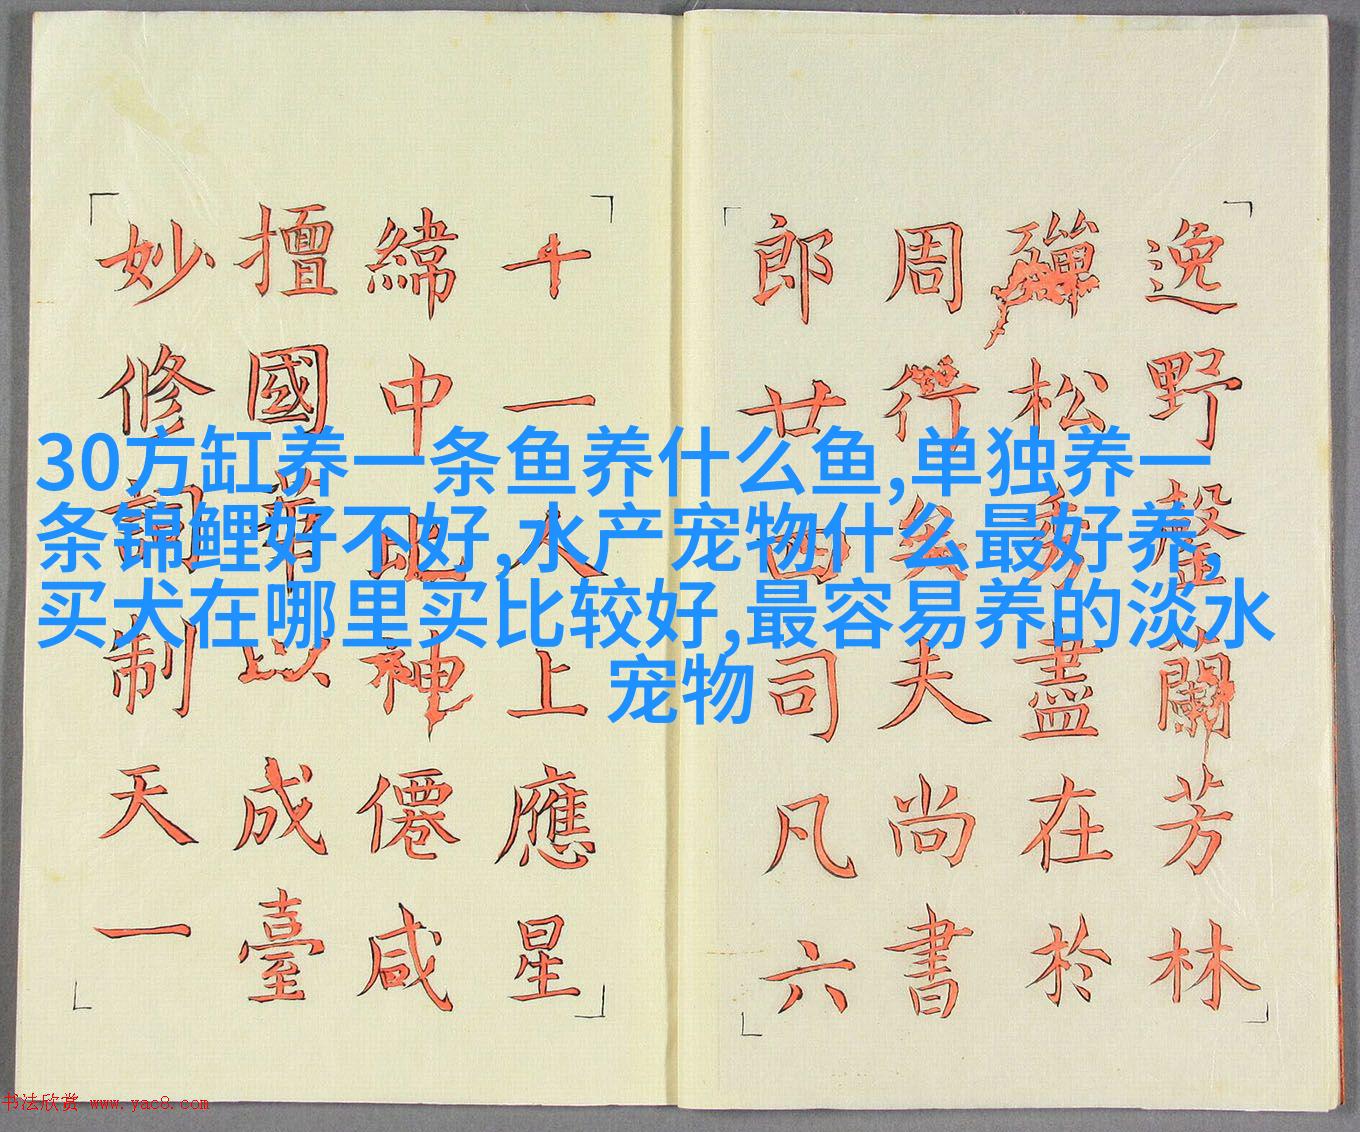 逸野馨蘭芳林
松多盡在於
周行矣夫尚書
郎廿四司凡六
十一人上應星
緯中比神僊咸
擅國華以成臺
妙修詞制天一
30方缸养一条鱼养什么鱼,单独养一
条锦鲤好不好,水产宠物什么最好养,
买犬在哪里买比较好,最容易养的淡水
宠物
书法欣赏 www.yac8.com